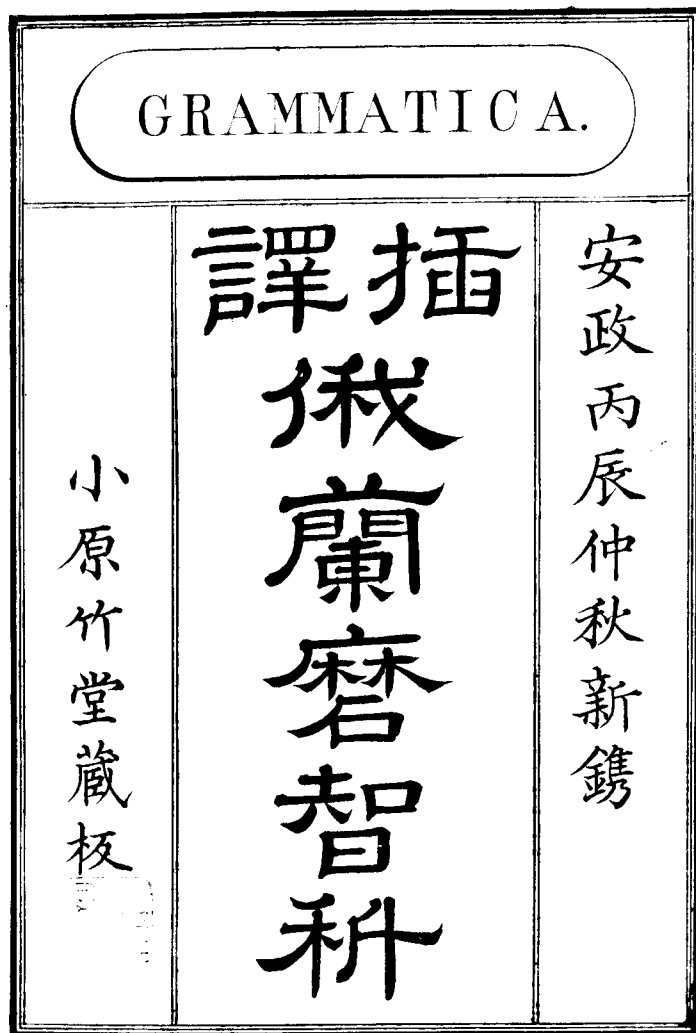 GRAMMATICA.
安政丙辰仲秋新鐫
插譯
俄蘭磨智科
小原竹堂蔵板